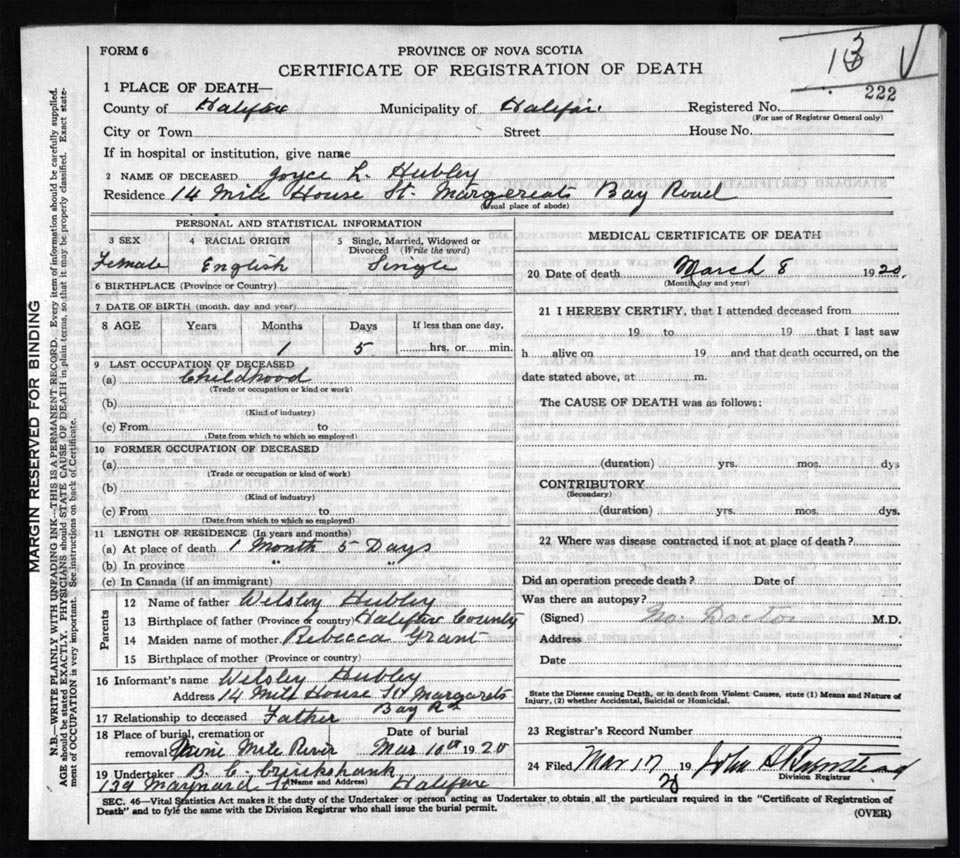 FORM 6
PROVINCE OF NOVA SCOTIA
CERTIFICATE OF REGISTRATION OF DEATH
13
222
1 PLACE OF DEATH—
County of Halifax Municipality of Halifax Registered No.
(For use of Registrar General only)
City or Town Street House No.
If in hospital or institution, give name
2 NAME OF DECEASED Joyce L. Hubley
Residence 14 Mile House St. Margereats Bay Road
(Usual place of abode)
PERSONAL AND STATISTICAL INFORMATION
3 SEX 4 RACIAL ORIGIN 5 Single, Married, Widowed or Divorced (Write the word)
Female English Single
6 BIRTHPLACE (Province or Country)
7 DATE OF BIRTH (month, day and year)
8 AGE Years Months Days If less than one day,
1 5 hrs. or min.
9 LAST OCCUPATION OF DECEASED
(a) Childhood
(Trade or occupation or kind or work)
(b)
(Kind of industry)
(c) From to
(Date from which to which so employed)
10 FORMER OCCUPATION OF DECEASED
(a)
(Trade or occupation or kind of work)
(b)
(Kind of industry)
(c) From to
(Date from which to which so employed)
11 LENGTH OF RESIDENCE (In years and months)
(a) At place of death 1 Month 5 Days
(b) In province " "
(c) In Canada (if an immigrant)
Parents
12 Name of father Welsley Hubley
13 Birthplace of father (Province or country) Halifax County
14 Maiden name of mother Rebecca Grant
15 Birthplace of mother (Province or country)
16 Informant's name Welsley Hubley
Address 14 Mill House St Margarets
Bay Rd
17 Relationship to deceased Father
18 Place of burial, cremation or Date of burial
removal Nine Mile River Mar 10th 1920
19 Undertaker B. C. Cruikshank
(Name and Address)
139 Maynard St Halifax
MEDICAL CERTIFICATE OF DEATH
20 Date of death March 8 1920.
(Month, day and year)
21 I HEREBY CERTIFY, that I attended deceased from
19 to 19 that I last saw
h alive on 19 and that death occurred, on the
date stated above, at m.
The CAUSE OF DEATH was as follows:
(duration) yrs. mos. dys
CONTRIBUTORY
(Secondary)
(duration) yrs. mos. dys.
22 Where was disease contracted if not at place of death?
Did an operation precede death? Date of
Was there an autopsy?
(Signed) No. Doctor M.D.
Address
Date
State the Disease causing Death, or in death from Violent Causes, state (1) Means and Nature of
Injury, (2) whether Accidental, Suicidal or Homicidal.
23 Registrar's Record Number
24 Filed Mar 17 19 20 John
Division Registrar
SEC. 46—Vital Statistics Act makes it the duty of the Undertaker or person acting as Undertaker to obtain all the particulars required in the "Certificate of Registration of
Death" and to fyle the same with the Division Registrar who shall issue the burial permit.
(OVER)
MARGIN RESERVED FOR BINDING
N.B.—WRITE PLAINLY WITH UNFADING INK—THIS IS A PERMANENT RECORD. Every item of information should be carefully supplied.
AGE should be stated EXACTLY. PHYSICIANS should STATE CAUSE OF DEATH in plain terms, so that it may be properly classified. Exact state-
ment of OCCUPATION is very important. See instructions on back of Certificate.